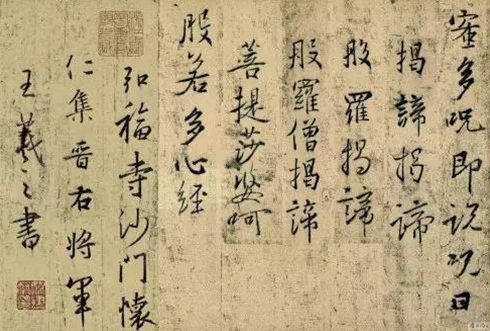 蜜多呪即說呪曰
揭諦揭諦
般羅揭諦
般羅僧揭諦
菩提莎婆呵
般若多心經
弘福寺沙門懷
仁集晉右將軍
王羲之書